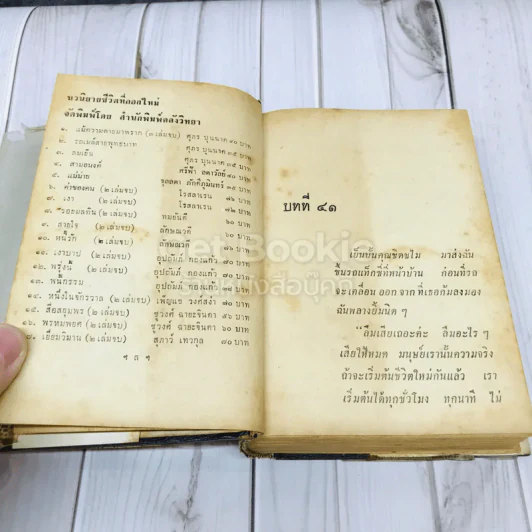 นวนิยายชีวิตที่ออกใหม่
จัดพิมพ์โดย สำนักพิมพ์คลังวิทยา
๑. แม้ความตายมาพราก (๒ เล่มจบ) ศุภร บุนนาค ๘๐ บาท
๒. รถเมล์สายพุทธบาท ศุภร บุนนาค ๓๕ บาท
๓. ลมเย็น ศุภร บุนนาค ๓๕ บาท
๔. สามอนงค์ ศรีฟ้า ลดาวัลย์
๕. แม่ม่าย จุลลดา ภักดีภูมินทร์
๖. ค่าของคน (๒ เล่มจบ) โรสลาเรน
๗. เงา (๒ เล่มจบ) โรสลาเรน
๘. รอยมลทิน (๒ เล่มจบ) ทมยันตี
๙. สายใจ (๒ เล่มจบ) ลักษณวดี
๑๐. หนี้รัก (๒ เล่มจบ) ลักษณวดี
๑๑. เงาบาป (๒ เล่มจบ) อุปถัมภ์ กองแก้ว
๑๒. พรุ่งนี้ (๒ เล่มจบ) อุปถัมภ์ กองแก้ว
๑๓. พันกรรม อุปถัมภ์ กองแก้ว
๑๔. หนึ่งในจักรวาล (๒ เล่มจบ) เพ็ญแข วงศ์สง่า
๑๕. สื่อสยุมพร (๒ เล่มจบ) ชูวงศ์ ฉายะจินดา
๑๖. พรหมพยศ (๒ เล่มจบ) ชูวงศ์ ฉายะจินดา ๖๐ บาท
๑๗. เยี่ยมวิมาน (๒ เล่มจบ) สุภาว์ เทวกุล ๘๐ บาท
ฯ ล ฯ
บทที่ ๔๑
เย็นนั้นคุณชิดชไม มาส่งฉัน
ขึ้นรถแท็กซี่ที่หน้าบ้าน ก่อนที่รถ
จะเคลื่อน ออก จาก ที่เธอก้มลงมอง
ฉันพลางยิ้มนิด ๆ
“ลืมเสียเถอะค่ะ ลืมอะไร ๆ
เสียให้หมด มนุษย์เรานั้นความจริง
ถ้าจะเริ่มต้นชีวิตใหม่กันแล้ว เรา
เริ่มต้นได้ทุกชั่วโมง ทุกนาที ไม่